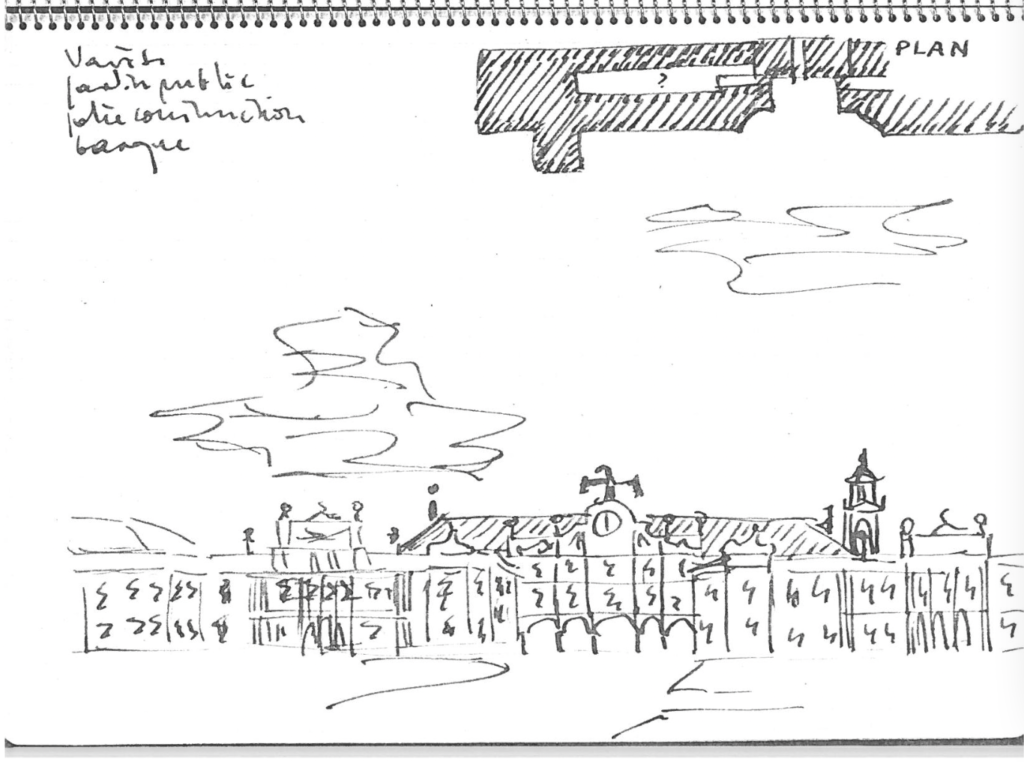 jardin public
jolie construction
baroque
PLAN
?